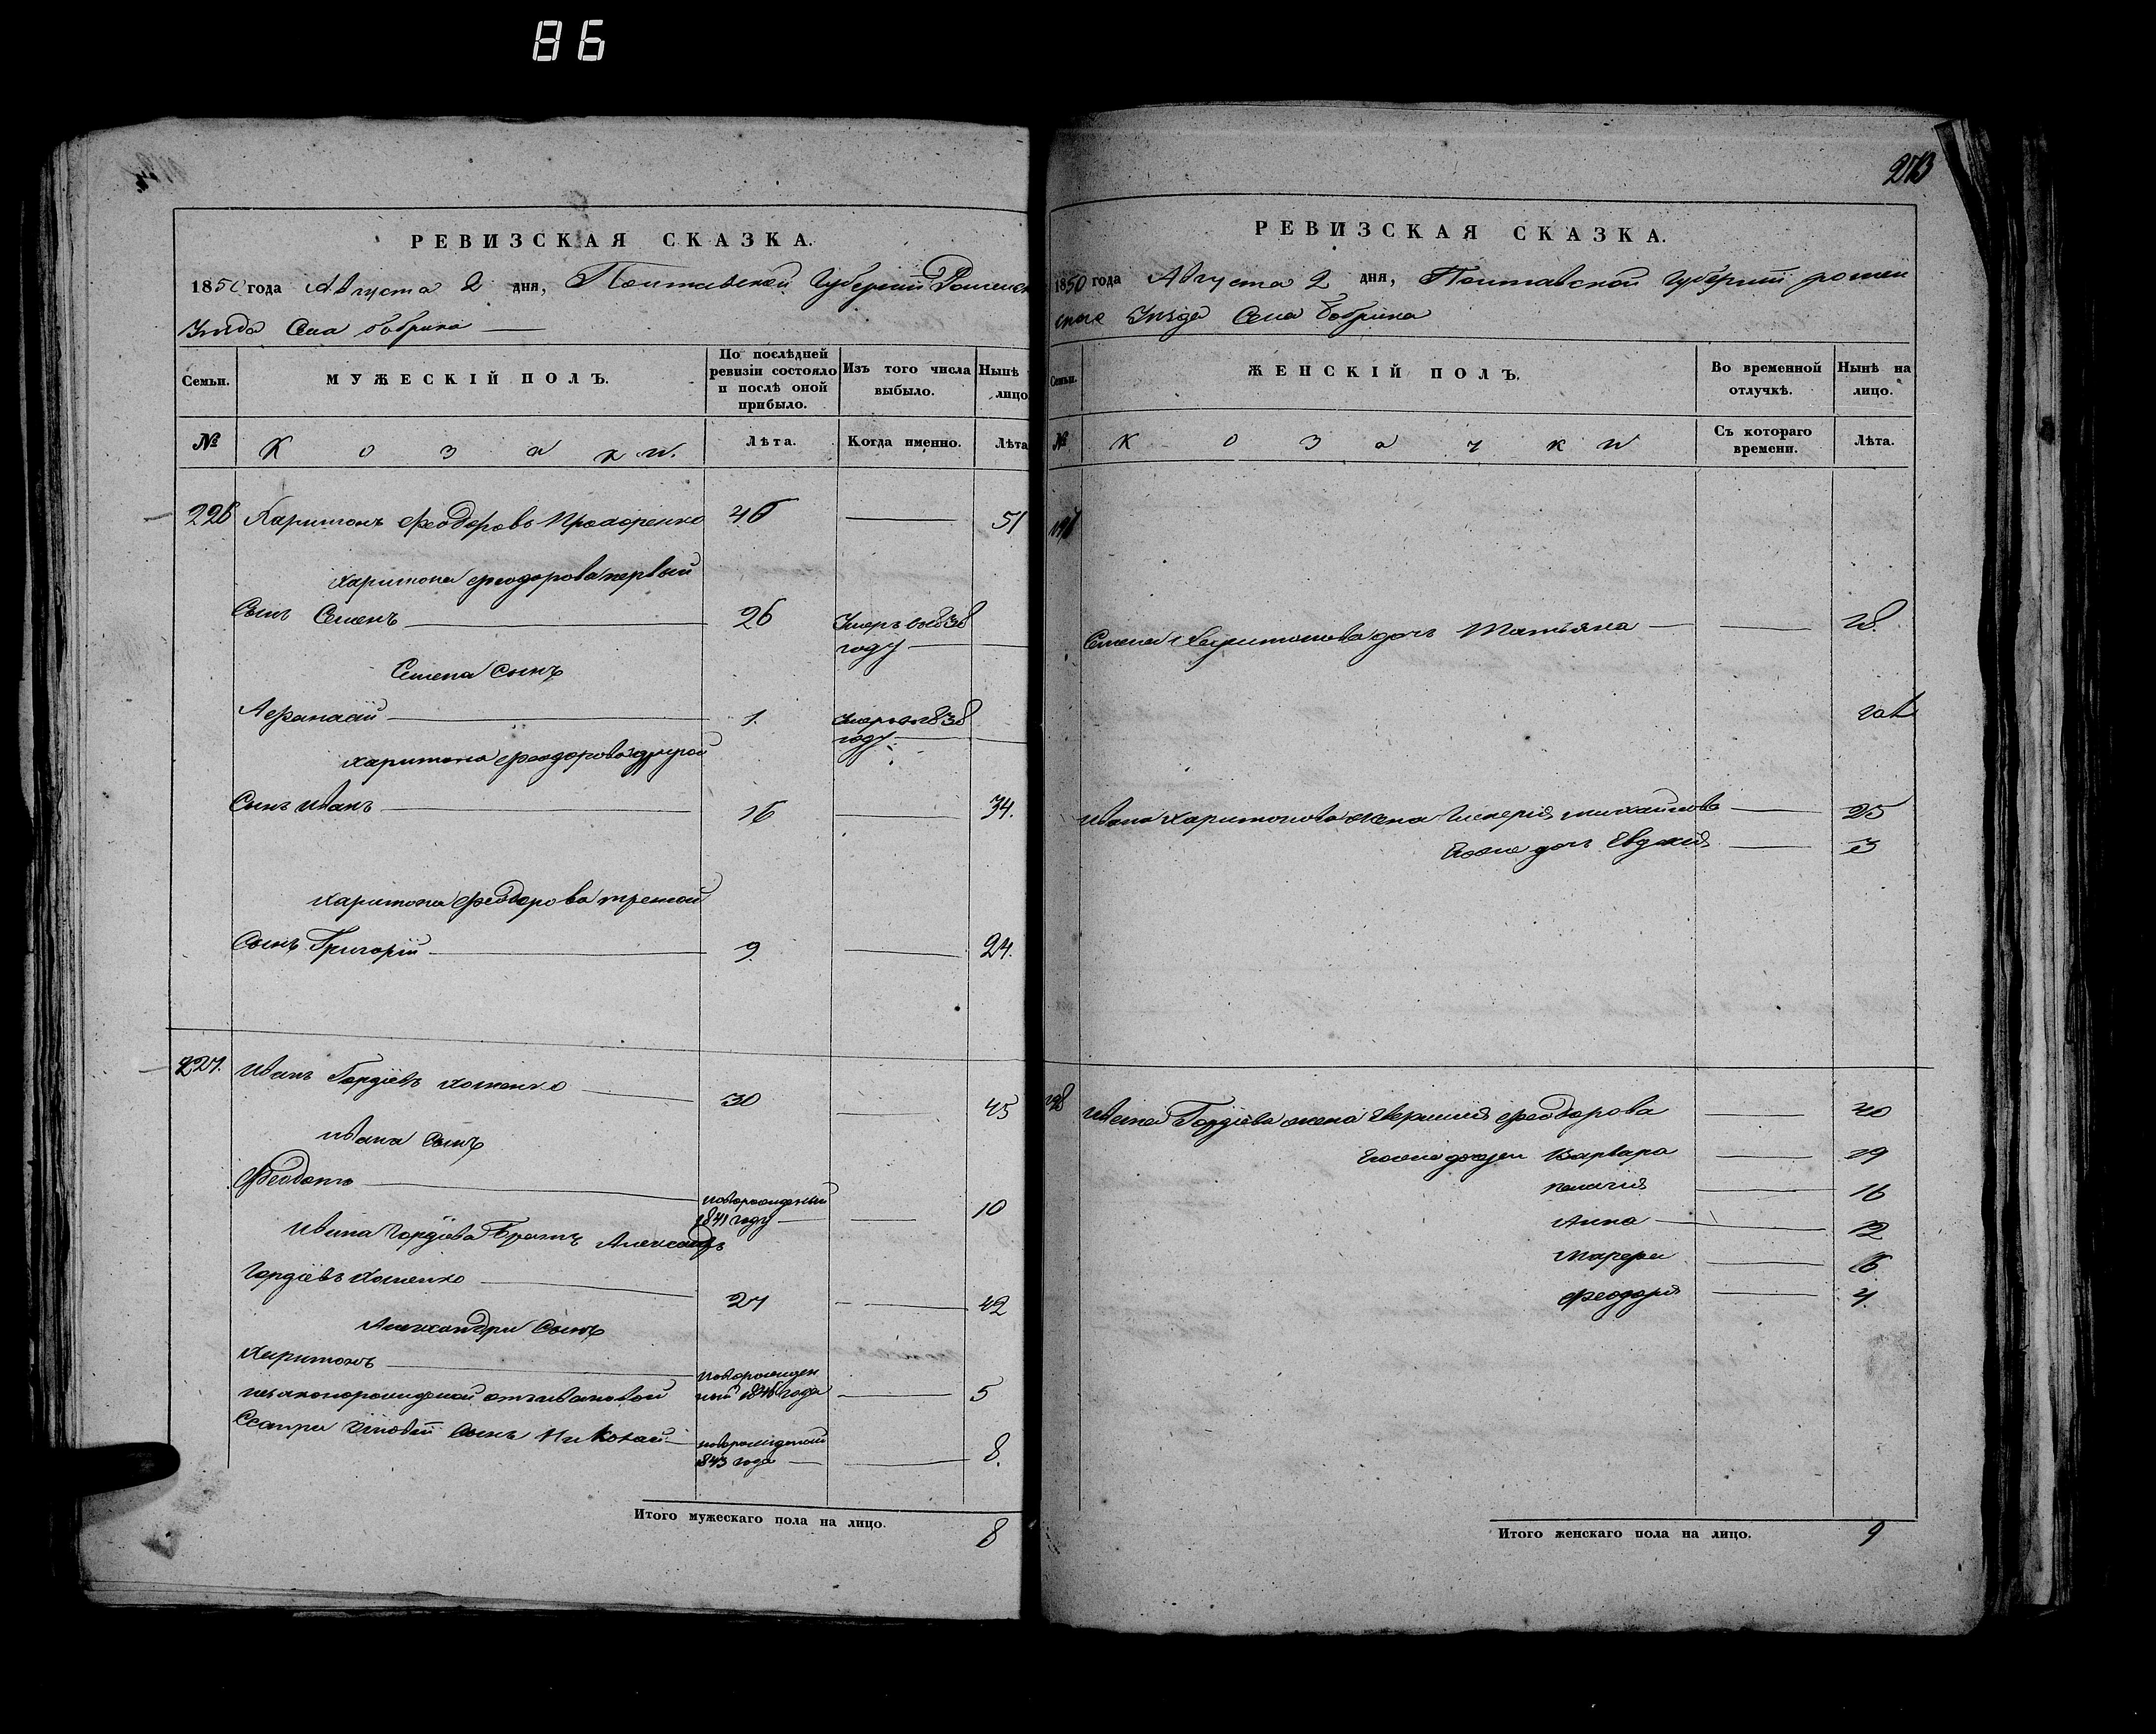 86
РЕВИЗСКАЯ СКАЗКА.
1850 года Августа 2 дня, Полтавской Губернии Роменск
Уезда Села бобрика
Семьи.
МУЖЕСКІЙ ПОЛЪ.
По послѣдней ревизіи состояло и послѣ оной прибыло.
Изъ того числа выбыло.
Нынѣ лицо
№
Козаки.
Лѣта.
Когда именно.
Лѣта
226 Харитонъ Феодоровъ Прохоренко 46 51
Харитона Феодорова первый
Сынъ Семенъ 26 Умеръ 1838
году
Семена Сынъ
Афанасий 1. Умеръ 1838
году
Харитона Феодорова другой
Сынъ Иванъ 16 34.
Харитона Феодорова третий
Сынъ Григорій 9. 24.
227. Иванъ Гордіевъ Хоменко 30 45
Ивана Сынъ
Феодотъ новорожденый
1841 году 10
Ивана Гордіева Братъ Александръ
Гордіевъ Хоменко 27 42
Александра Сынъ
Харитонъ новорожден
ный 1846 года 5
незаконорожденой от Ивановой
Сестры Сынъ Николай новорожденый
1843 года 8.
Итого мужескаго пола на лицо. 8
213
РЕВИЗСКАЯ СКАЗКА.
1850 года Августа 2 дня, Полтавской Губернии ромен
ского Уезда Села Бобрика
Семьи.
ЖЕНСКІЙ ПОЛЪ.
Во временной отлучкѣ.
Нынѣ на лицо.
№
Козачки
Съ котораго времени.
Лѣта.
Семена Харитонова дочь Татьяна 18.
Ивана Харитонова жена Гликерія михайлова 25
Ихъ дочь Евдокія 3
198 Ивана Гордіева жена Феодорова 40
дочери Варвара 19
пелагия 16
Анна 12
Марфа 6
Феодора 4.
Итого женскаго пола на лицо. 9